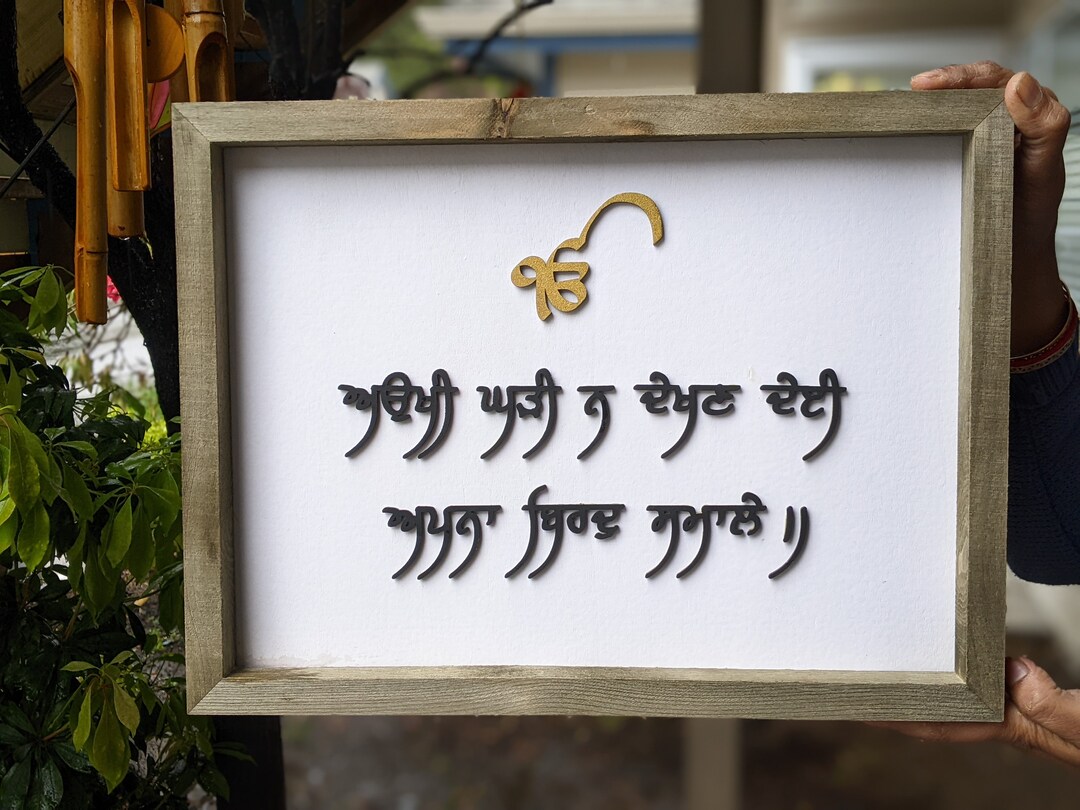 ੴ
ਅਉਖੀ ਘੜੀ ਨ ਦੇਖਣ ਦੇਈ
ਅਪਨਾ ਬਿਰਦੁ ਸਮਾਲੇ ॥